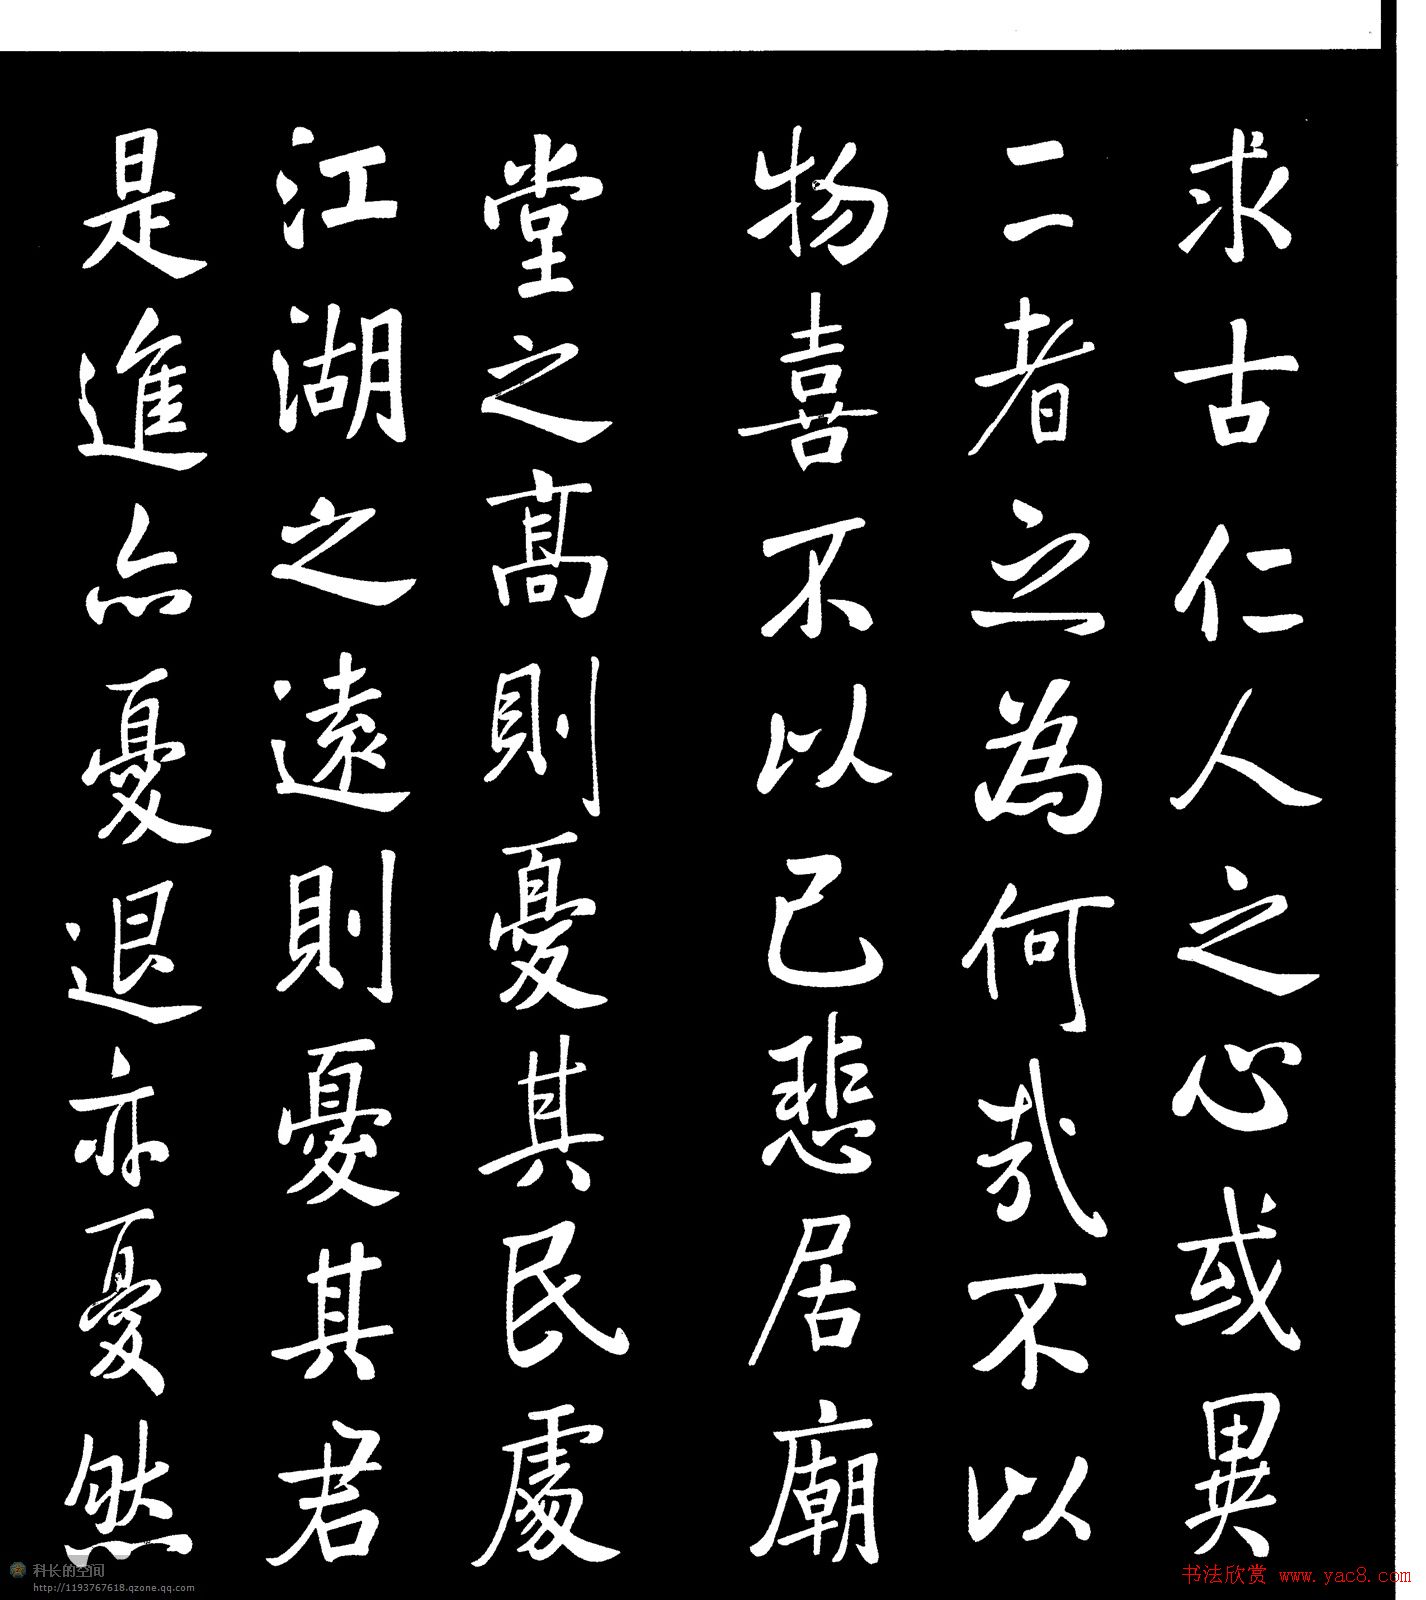 求古仁人之心或異
二者之為何哉不以
物喜不以己悲居廟
堂之高則憂其民處
江湖之遠則憂其君
是進亦憂退亦憂然
科长的空间
http://1193767618.qzone.qq.com
书法欣赏 www.yac8.com